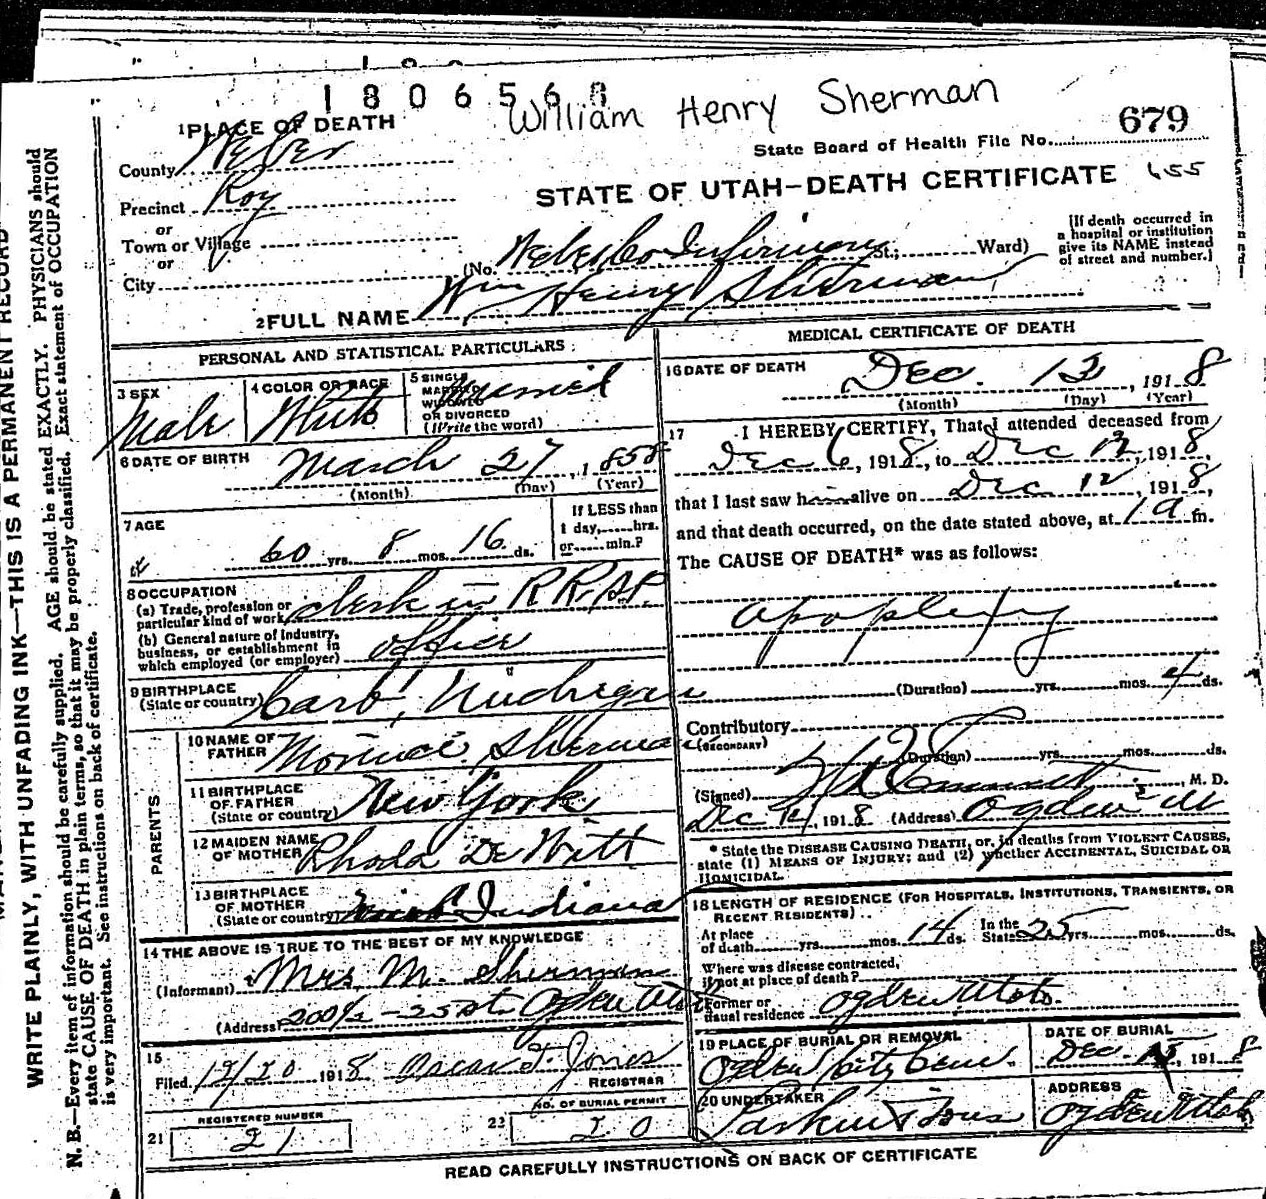 1806568
William Henry Sherman
1 PLACE OF DEATH
679
State Board of Health File No.
County Weber
STATE OF UTAH—DEATH CERTIFICATE 455
Precinct Roy
or
Town or Village
or
City
(No. Weber Co Infirmary St.; Ward)
[If death occurred in
a hospital or institution
give its NAME instead
of street and number.]
2 FULL NAME Wm Henry Sherman
PERSONAL AND STATISTICAL PARTICULARS
3 SEX
Male
4 COLOR OR RACE
White
5 SINGLE
MARRIED
WIDOWED
OR DIVORCED
(Write the word)
Married
6 DATE OF BIRTH
March 27, 1858
(Month) (Day) (Year)
7 AGE
60 yrs. 8 mos. 16 ds.
If LESS than
1 day, hrs.
or min.?
8 OCCUPATION
(a) Trade, profession or
particular kind of work clerk in R R
(b) General nature of industry,
business, or establishment in
which employed (or employer) office
9 BIRTHPLACE
(State or country)
PARENTS
10 NAME OF
FATHER Sherman
11 BIRTHPLACE
OF FATHER
(State or country) New York
12 MAIDEN NAME
OF MOTHER Rhoda De Witt
13 BIRTHPLACE
OF MOTHER
(State or country) Indiana
14 THE ABOVE IS TRUE TO THE BEST OF MY KNOWLEDGE
(Informant) Mrs. M. Sherman
(Address) 200½ - 25 St. Ogden Utah
15
Filed 12/20 1918 Oscar T. Jones
REGISTRAR
REGISTERED NUMBER
21 21
NO. OF BURIAL PERMIT
22 20
MEDICAL CERTIFICATE OF DEATH
16 DATE OF DEATH
Dec. 13, 1918
(Month) (Day) (Year)
17 I HEREBY CERTIFY, That I attended deceased from
Dec 6, 1918, to Dec 12, 1918,
that I last saw him alive on Dec 12, 1918,
and that death occurred, on the date stated above, at 1 a m.
The CAUSE OF DEATH* was as follows:
apoplexy
(Duration) yrs. mos. 4 ds.
Contributory
(SECONDARY)
(Duration) yrs. mos. ds.
(Signed) M. D.
Dec 14, 1918 (Address) Ogden Ut
* State the DISEASE CAUSING DEATH, or, in deaths from VIOLENT CAUSES,
state (1) MEANS OF INJURY; and (2) whether ACCIDENTAL, SUICIDAL OR
HOMICIDAL.
18 LENGTH OF RESIDENCE (FOR HOSPITALS, INSTITUTIONS, TRANSIENTS, OR
RECENT RESIDENTS)
At place
of death yrs. mos. 14 ds.
In the
State 25 yrs. mos. ds.
Where was disease contracted,
if not at place of death?
Former or
usual residence Ogden Utah.
19 PLACE OF BURIAL OR REMOVAL
Ogden City Cem.
DATE OF BURIAL
Dec. 15, 1918
20 UNDERTAKER
Larkin & Sons
ADDRESS
Ogden Utah
READ CAREFULLY INSTRUCTIONS ON BACK OF CERTIFICATE
WRITE PLAINLY, WITH UNFADING INK—THIS IS A PERMANENT RECORD
N. B.—Every item of information should be carefully supplied. AGE should be stated EXACTLY. PHYSICIANS should
state CAUSE OF DEATH in plain terms, so that it may be properly classified. Exact statement of OCCUPATION
is very important. See instructions on back of certificate.